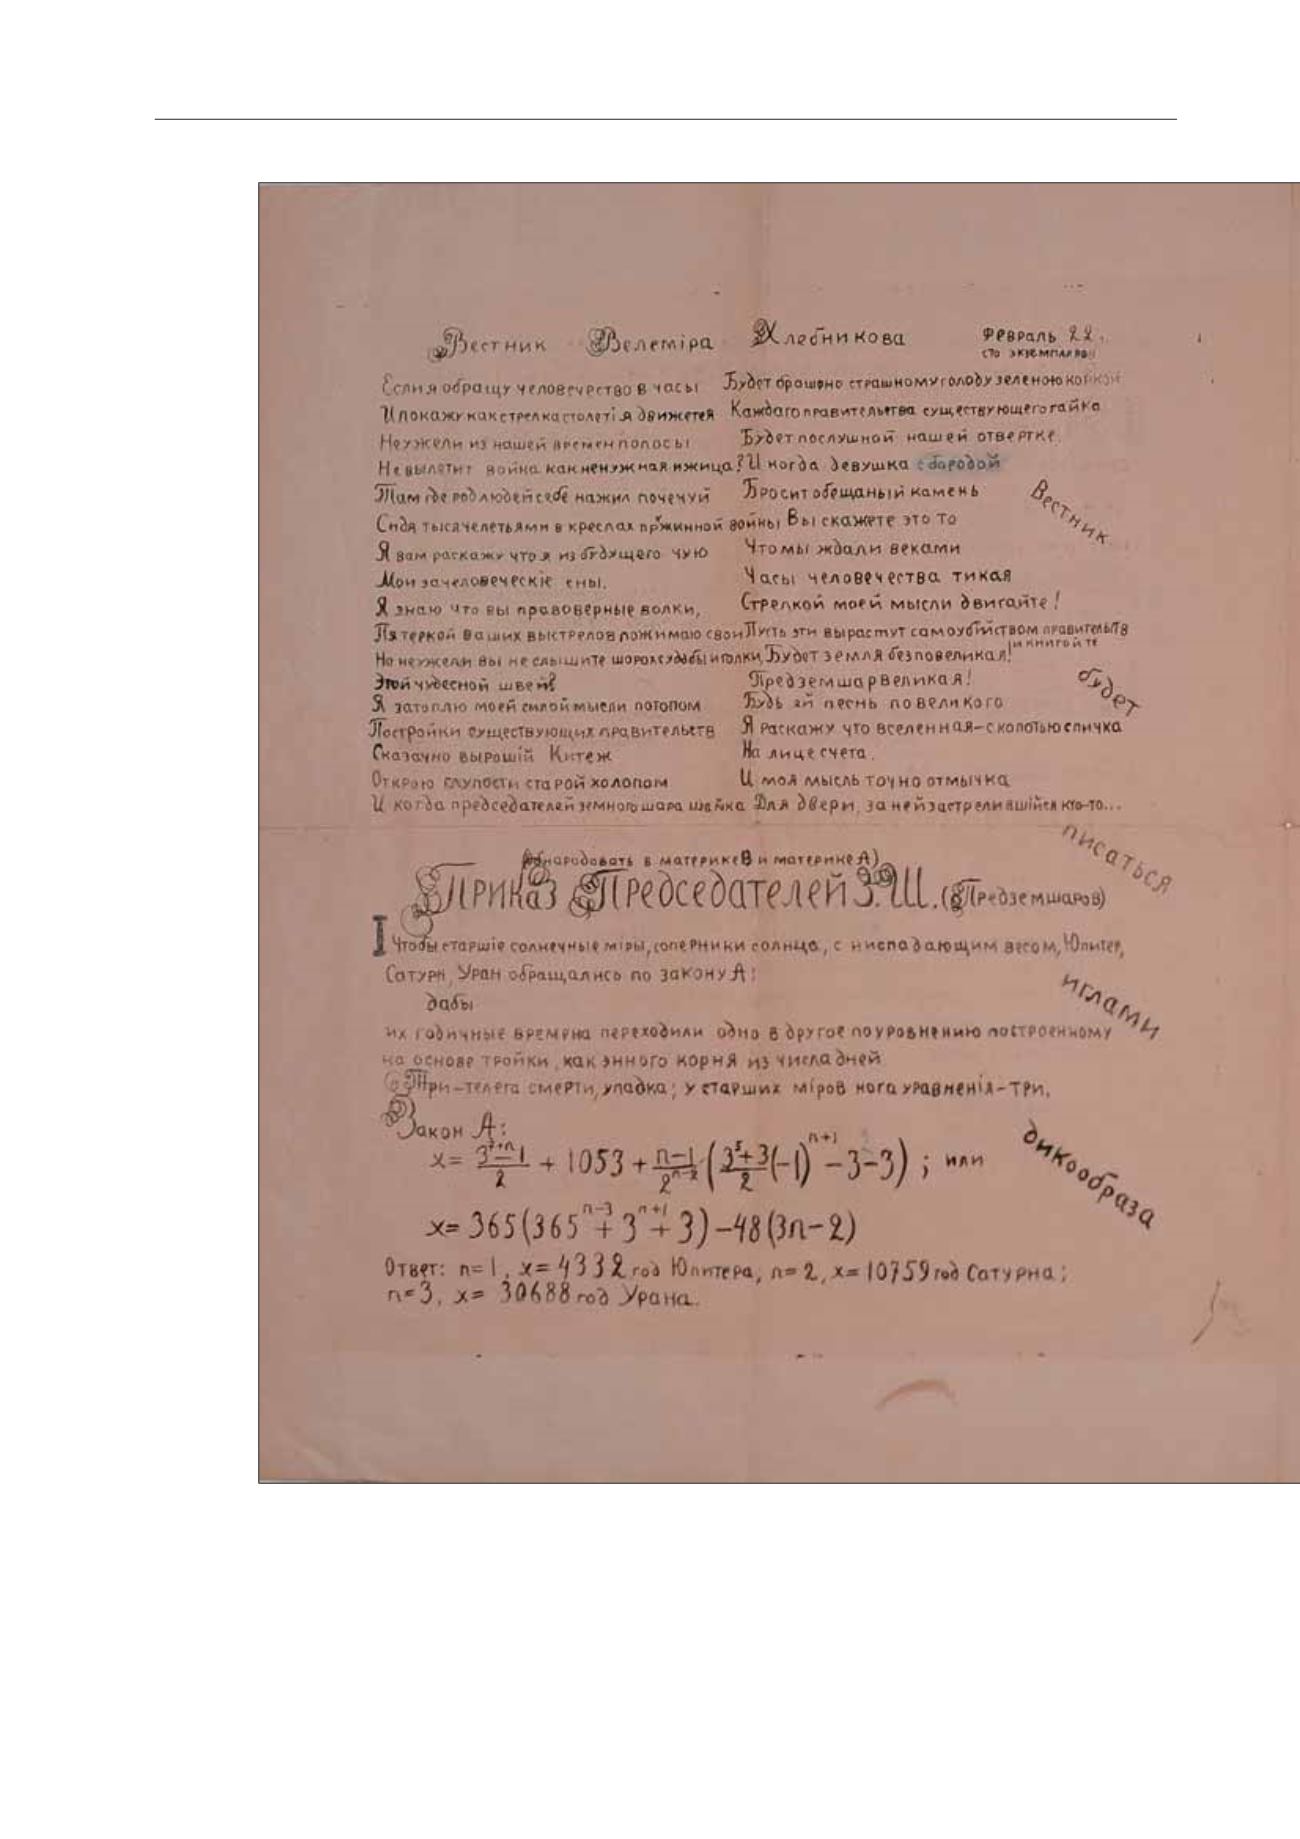 Вестник Велеміра Хлебникова Февраль 22.
сто экземпляров
Если я обращу человечество в часы
И покажу как стрелка столетія движется
Неужели из нашей времен полосы
Не вылетит война как ненужная ижица?
Там где род людей себе нажил почечуй
Сидя тысячелетьями в креслах пружинной войны
Я вам раскажу что я из будущего чую
Мои зачеловеческіе сны.
Я знаю что вы правоверные волки,
Пятеркой ваших выстрелов пожимаю свои
Но неужели вы не слышите шорох судьбы иголки,
Этой чудесной швеи
Я затоплю моей силой мысли потопом
Постройки существующих правительств
Сказочно вырошій Китеж
Открою глупости старой холопам
И когда председателей земного шара шайка
Будет брошено страшному голоду зеленою коркой
Каждаго правительства существующего гайка
Будет послушной нашей отвертке.
И когда девушка с бородой
Бросит обещаный камень
Вы скажете это то
Что мы ждали веками
Часы человечества тикая
Стрелкой моей мысли двигайте!
Пусть эти вырастут самоубійством правительств
и книгой те
Будет земля безповеликая!
Предземшарвеликая!
Будь ей песнь повеликого
Я раскажу что вселенная-с копотью спичка
На лице счета.
И моя мысль точно отмычка
Для двери, за ней застрелившійся кто-то...
Вестник
будет
писаться
иглами
дикообраза
(Обнародовать в материке В и материке А)
Приказ Председателей З.Ш. (Предземшаров)
I Чтобы старшіе солнечные міры, соперники солнца, с ниспадающим весом, Юпитер,
Сатурн, Уран обращались по закону А:
дабы
их годичные времена переходили одно в другое по уровнению построенному
на основе тройки, как энного корня из числа дней
Три-телега смерти, упадка; у старших міров нога уравненія-три.
Закон А:
x= (3^{7+n}-1)/2 + 1053 + (n-1)/2^{n-2} ((3^5+3)/2 (-1)^{n+1} -3-3); или
x= 365(365^{n-3} + 3^{n+1} + 3) -48(3n-2)
Ответ: n=1, x=4332 год Юпитера, n=2, x=10759 год Сатурна;
n=3, x= 30688 год Урана.